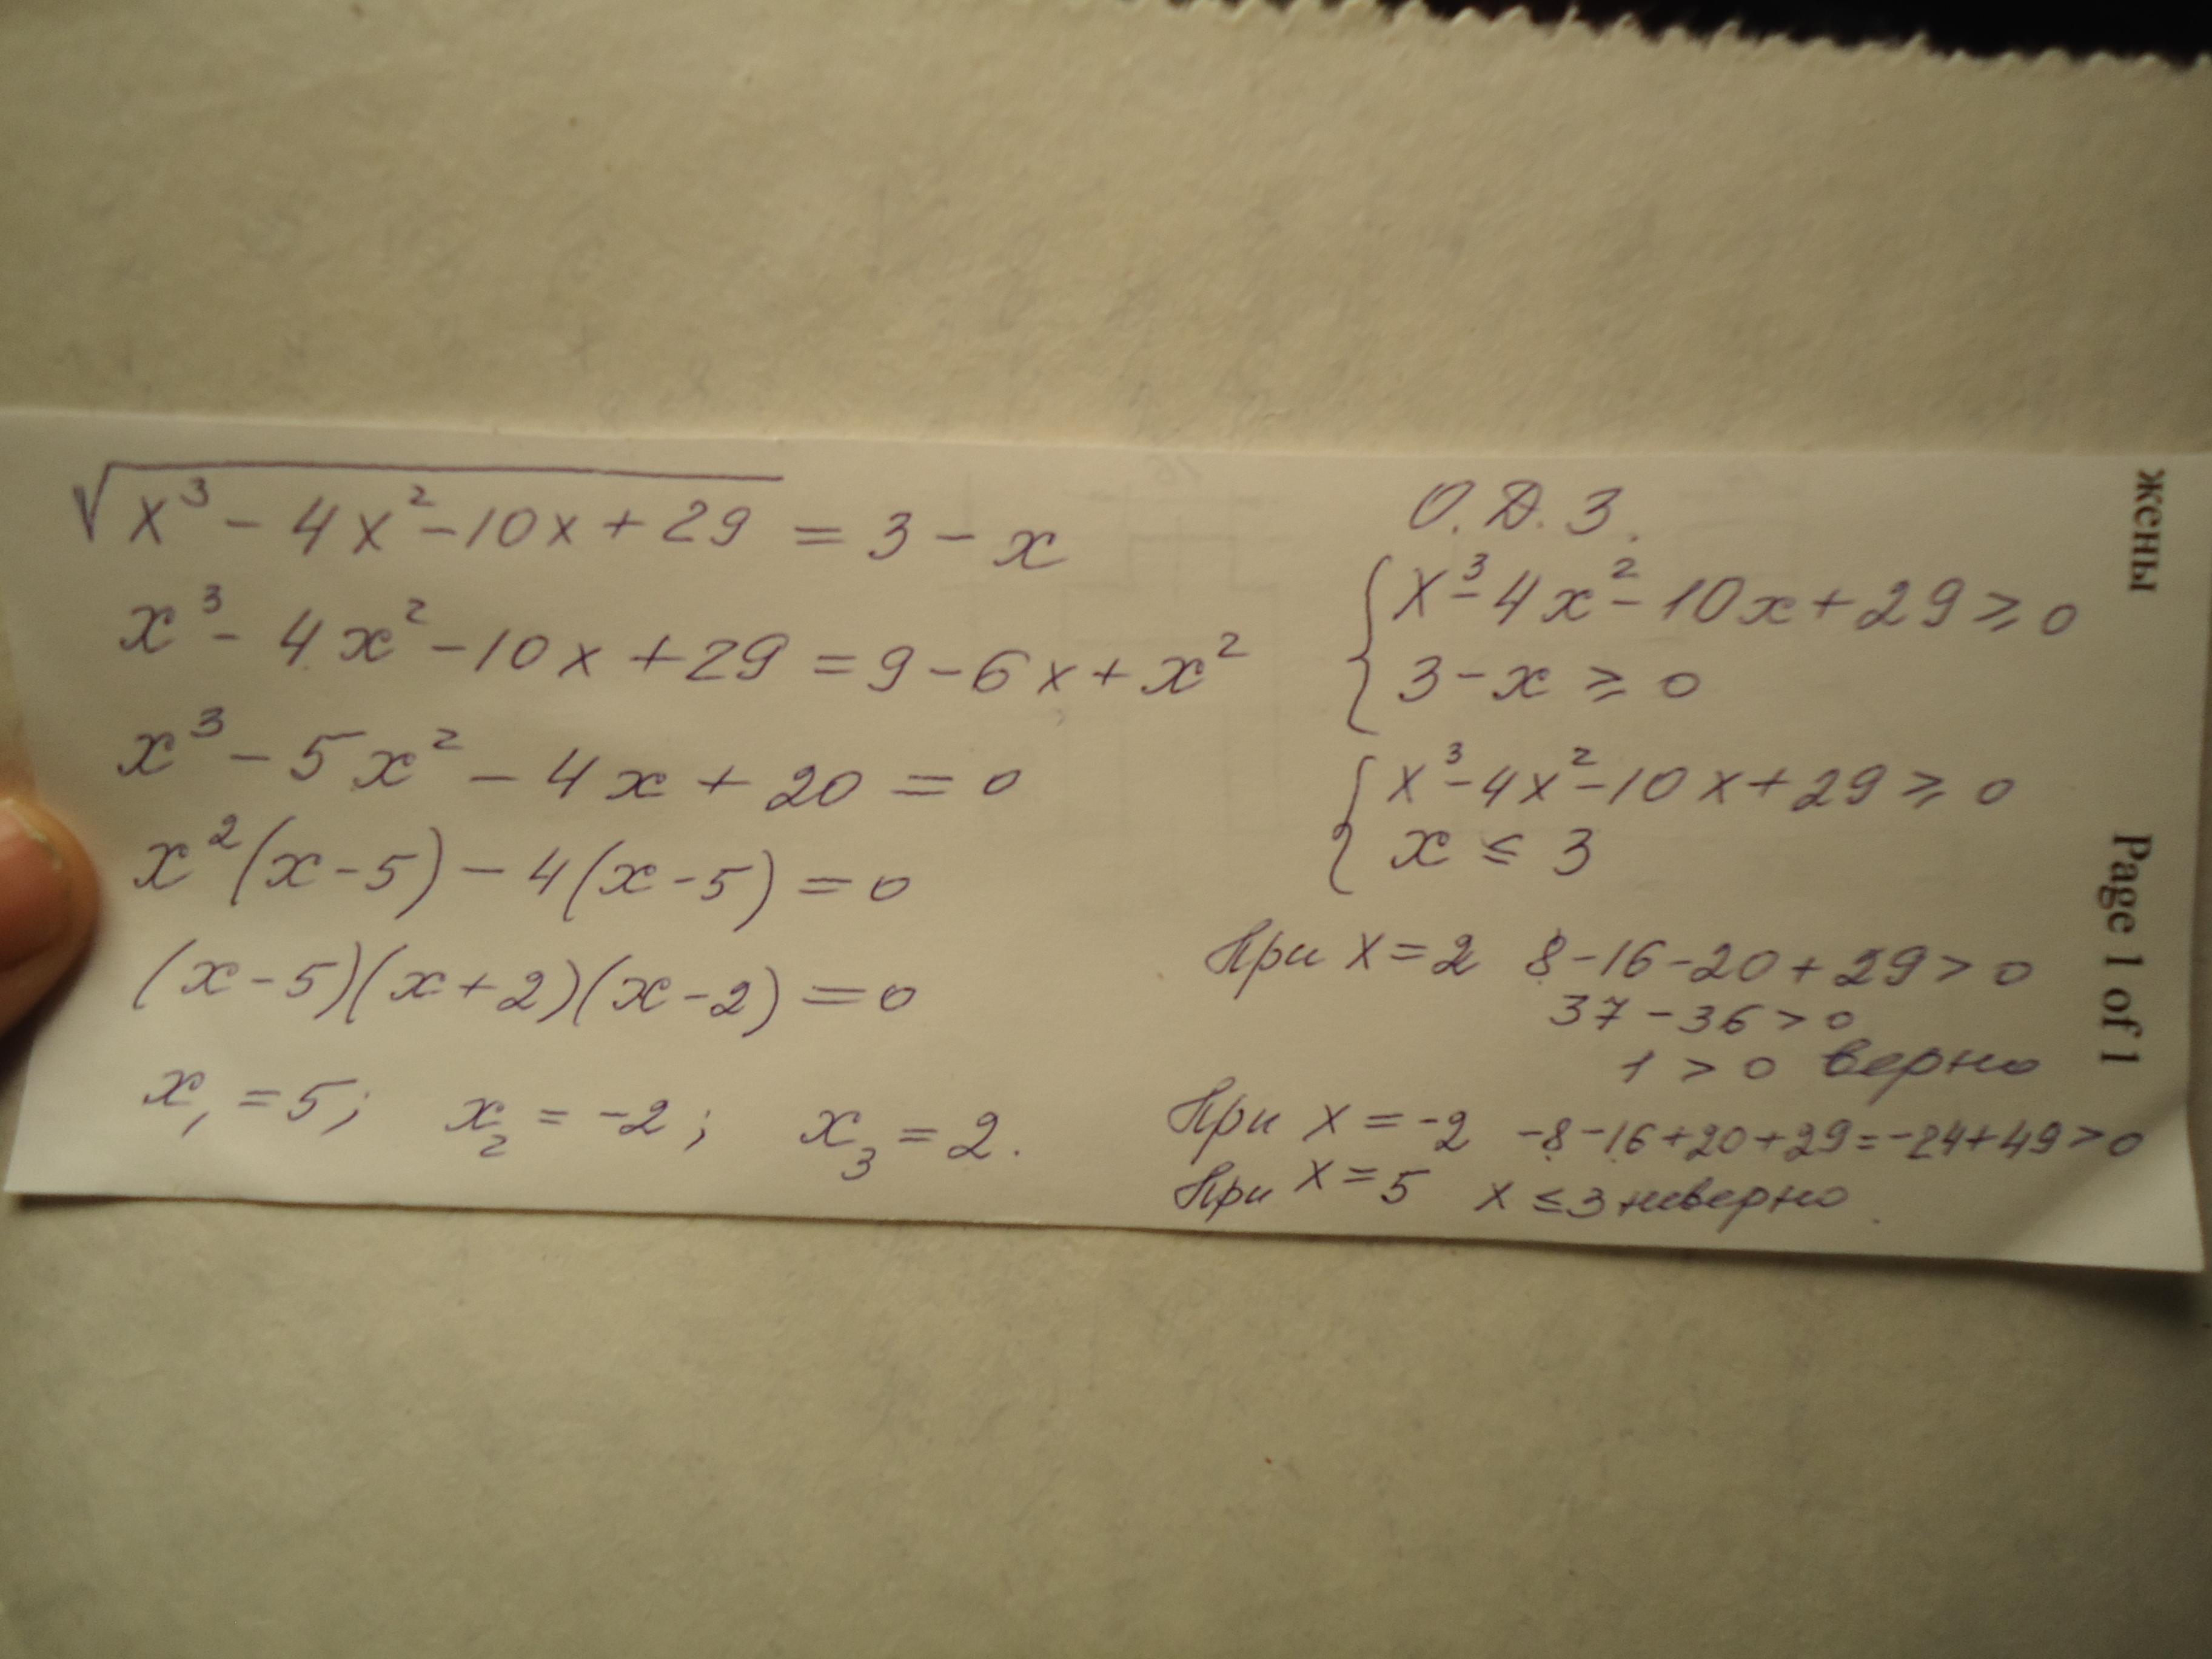 √(x³ − 4x² − 10x + 29) = 3 − x
x³ − 4x² − 10x + 29 = 9 − 6x + x²
x³ − 5x² − 4x + 20 = 0
x²(x − 5) − 4(x − 5) = 0
(x − 5)(x + 2)(x − 2) = 0
x₁ = 5; x₂ = −2; x₃ = 2.
О.Д.З.
{ x³ − 4x² − 10x + 29 ⩾ 0
3 − x ⩾ 0
{ x³ − 4x² − 10x + 29 ⩾ 0
x ⩽ 3
При x = 2 8 − 16 − 20 + 29 > 0
37 − 36 > 0
1 > 0 верно
При x = −2 −8 − 16 + 20 + 29 = −24 + 49 > 0
При x = 5 x ⩽ 3 неверно.
жены Page 1 of 1